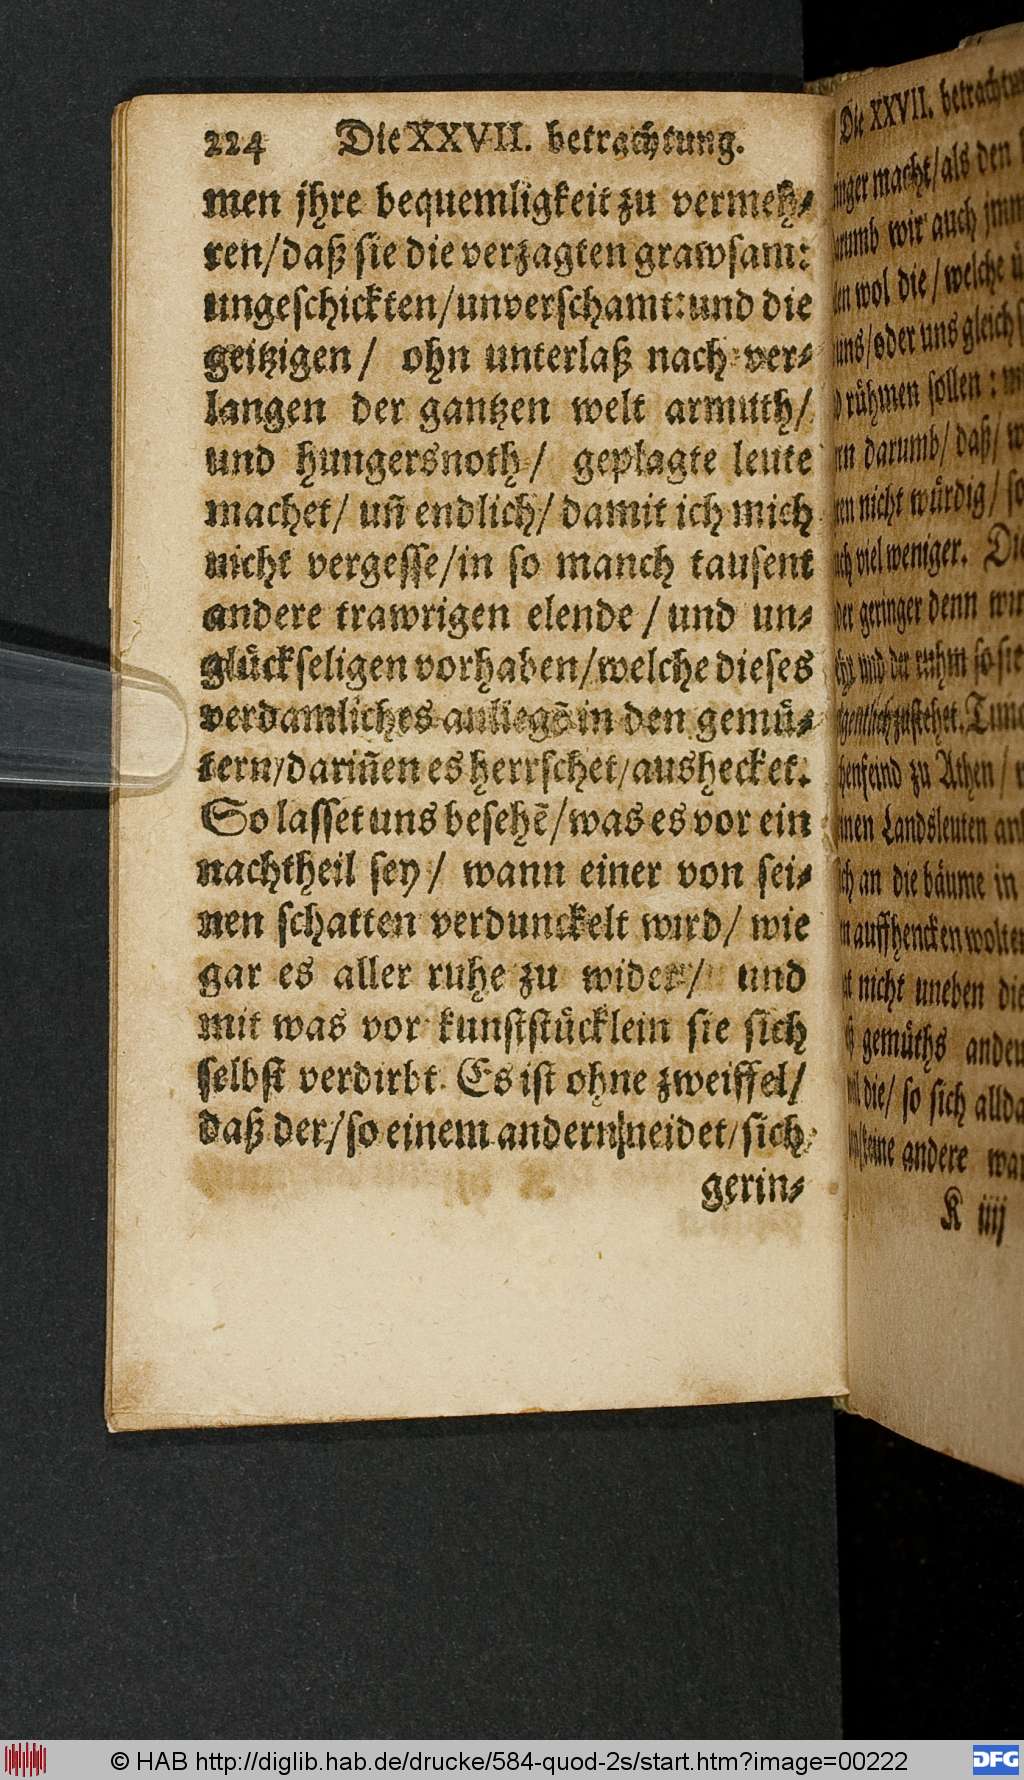 224 Die XXVII. betrachtung.
men jhre bequemligkeit zu vermeh⸗
ren/daß sie die verzagten grawsam:
ungeschickten/unverschamt:und die
geitzigen/ ohn unterlaß nach ver⸗
langen der gantzen welt armuth/
und hungersnoth/ geplagte leute
machet/ uñ endlich/ damit ich mich
nicht vergesse/in so manch tausent
andere trawrigen elende/und un⸗
glückseligen vorhaben/welche dieses
verdamliches anliegẽ in den gemü⸗
tern/dariñen es herrschet/aushecket.
So lasset uns besehẽ/was es vor ein
nachtheil sey/ wann einer von sei⸗
nen schatten verdunckelt wird/ wie
gar es aller ruhe zu wider/ und
mit was vor kunststücklein sie sich
selbst verdirbt. Es ist ohne zweiffel/
daß der/so einem andern neidet/sich
gerin⸗
Die XXVII. betrachtun
macht/als den
wir auch
wol die/welche
uns/oder uns gleich
rühmen sollen:
darumb/daß/
nicht würdig/
viel weniger. Die
geringer denn
und der ruhm so sie
zu Athen/
Landsleuten
an die bäume in
auffhencken
nicht uneben die
gemüths
die/ so sich
andere
K iiij
© HAB http://diglib.hab.de/drucke/584-quod-2s/start.htm?image=00222
DFG